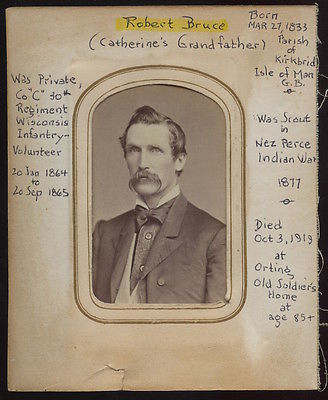 Robert Bruce
(Catherine's Grandfather)
Born
MAR 27, 1833
Parish
of
Kirkbrid
Isle of Man
G.B.
Was Private,
Co "C" 30th
Regiment
Wisconsin
Infantry-
Volunteer
20 Jan 1864
to
20 Sep 1865
Was Scout
in
Nez Perce
Indian War
1877
Died
Oct 3, 1919
at
Orting,
Old Soldier's
Home
at
age 85+